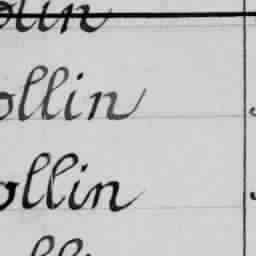 ollin
ollin
ollin